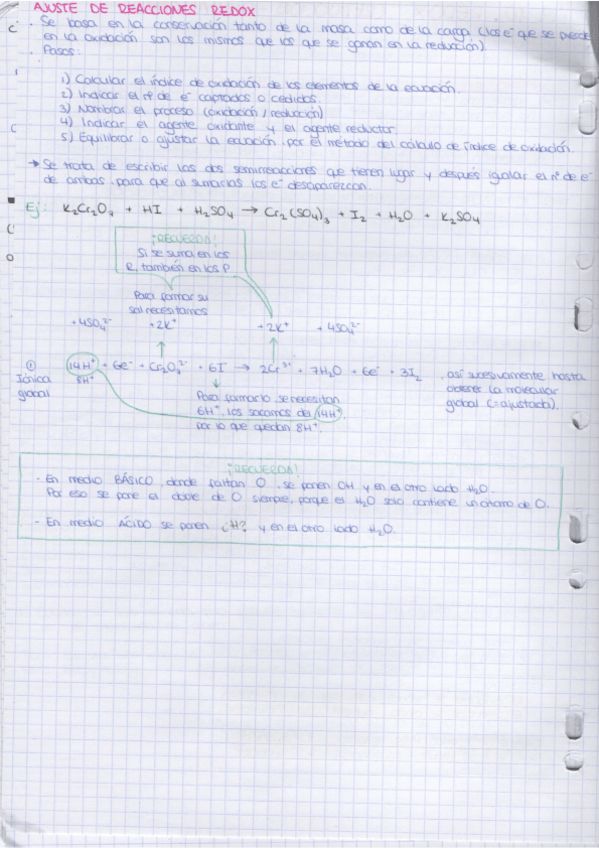 AJUSTE DE REACCIONES REDOX
· Se basa en la conservación tanto de la masa como de la carga (los e⁻ que se pierden
en la oxidación son los mismos que los que se ganan en la reducción).
· Pasos:
1) Calcular el índice de oxidación de los elementos de la ecuación.
2) Indicar el nº de e⁻ captados o cedidos.
3) Nombrar el proceso (oxidación / reducción)
4) Indicar el agente oxidante y el agente reductor.
5) Equilibrar o ajustar la ecuación por el método del cálculo de índice de oxidación.
→ Se trata de escribir las dos semirreacciones que tienen lugar y después igualar el nº de e⁻
de ambas, para que al sumarlas los e⁻ desaparezcan.
Ej: K₂Cr₂O₇ + HI + H₂SO₄ → Cr₂(SO₄)₃ + I₂ + H₂O + K₂SO₄
¡RECUERDA!
Si se suma en los
R, también en los P
Para formar su
sal necesitamos
+4SO₄²⁻ +2K⁺ +2K⁺ +4SO₄²⁻
① 14H⁺ + 6e⁻ + Cr₂O₇²⁻ + 6I⁻ → 2Cr³⁺ + 7H₂O + 6e⁻ + 3I₂, así sucesivamente hasta
Iónica 8H⁺ obtener la molecular
global global (=ajustada).
Para formarlo, se necesitan
6H⁺, los sacamos de 14H⁺
por lo que quedan 8H⁺.
¡RECUERDA!
- En medio BÁSICO, donde faltan O, se ponen OH y en el otro lado H₂O.
Por eso se pone el doble de O siempre, porque el H₂O solo contiene un átomo de O.
- En medio ÁCIDO se ponen ¿H? y en el otro lado H₂O.